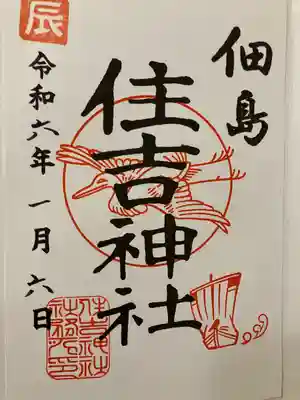 佃島
住吉神社
辰
令和六年一月六日
住吉神社
社務所印